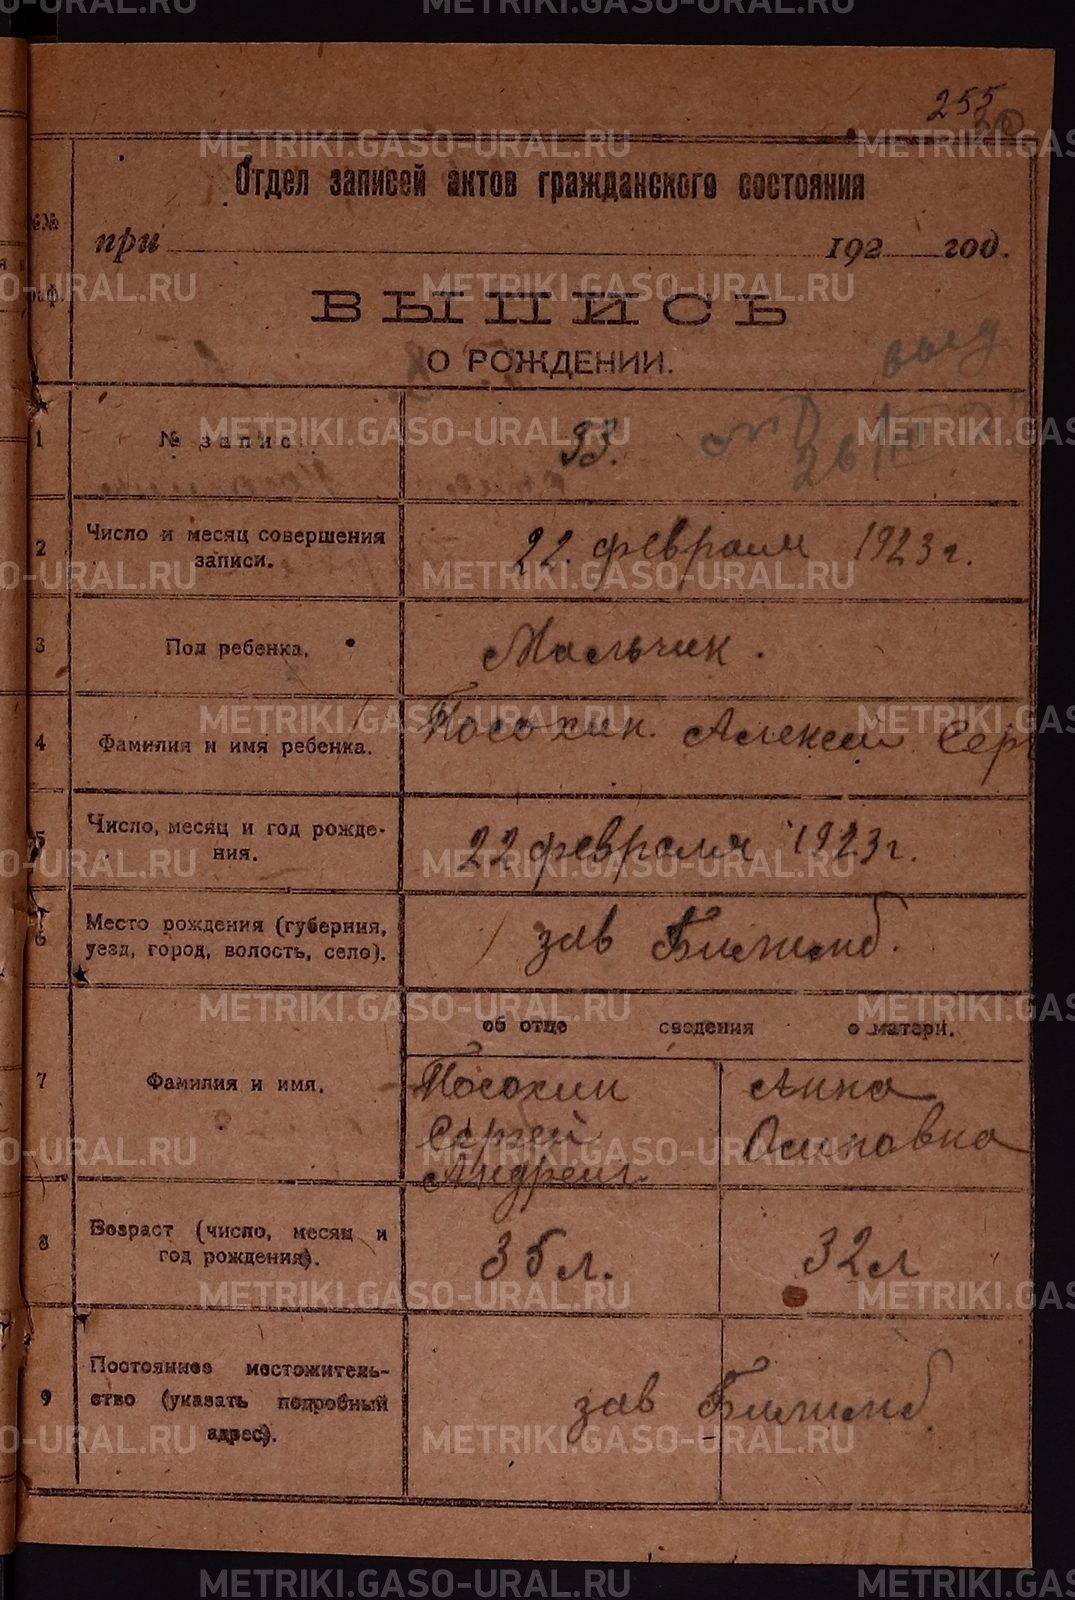 255
Отдел записей актов гражданского состояния
при 192 год.
ВЫПИСЬ
О РОЖДЕНИИ.
выд
1 № запис. 33.
26/III
2 Число и месяц совершения записи. 22. февраля 1923 г.
3 Пол ребенка. Мальчик.
4 Фамилия и имя ребенка. Посохин. Алексей Сер
5 Число, месяц и год рожде-
ния. 22 февраля 1923 г.
6 Место рождения (губерния,
уезд, город, волость, село). зав Билимб.
об отце сведения о матери.
7 Фамилия и имя. Посохин Анна
Сергей Осиповна
Андреич.
8 Возраст (число, месяц и
год рождения). 35 л. 32 л
9 Постоянное местожитель-
ство (указать подробный
адрес). зав Билимб.
METRIKI.GASO-URAL.RU